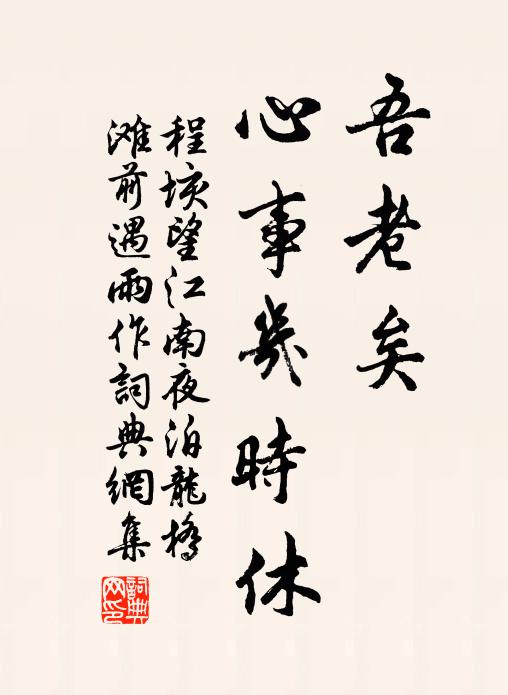 吾老矣
心事幾時休
程垓望江南夜泊龍橋
滩前遇雨作詞典網集
詞典
网印